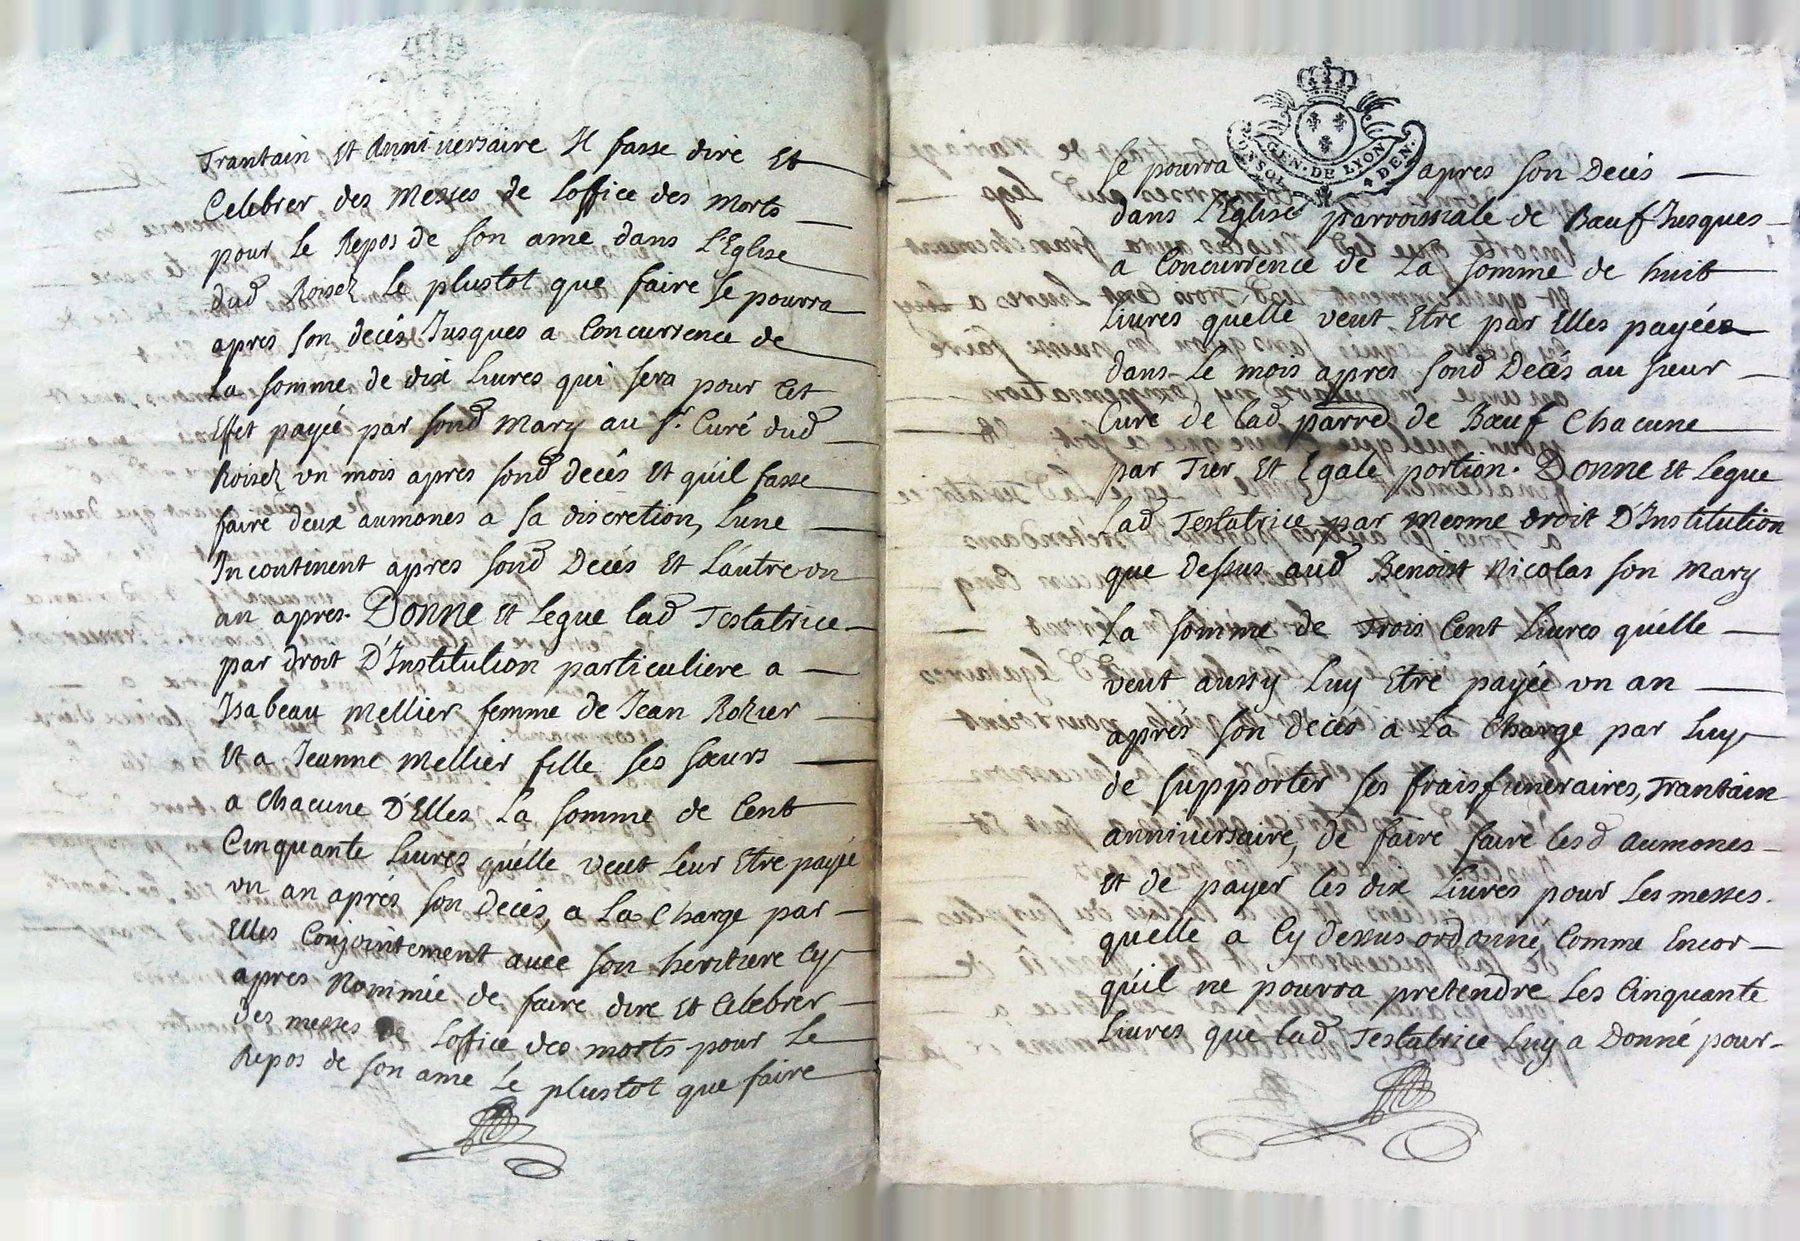 Trantain et Anniversaire Il fasse dire Et
Celebrer des Messes de Loffice des Morts
pour Le Repos de son ame dans L'Eglise
dud Roisez Le plustot que faire se pourra
apres son decés Jusques a Concurrence de
La somme de dix Livres qui sera pour Cet
Effet payée par sond Mary au Sr. Curé dud
Roisez un mois apres sond decés et qu'il fasse
faire deux aumones a sa discretion, Lune
Incontinent apres sond Decés et L'autre un
an apres. Donne et Legue lad Testatrice
par droit D'Institution particuliere a
Isabeau Mellier femme de Jean Rozier
et a Jeanne Mellier fille ses sœurs
a Chacune D'Elles La somme de Cent
Cinquante Livres qu'elle veut Leur Etre payée
un an aprés son Decés, a La Charge par
Elles Conjointement avec son heritiere Cy
apres Nommée de faire dire et Celebrer
des messes de Loffice des morts pour Le
Repos de son ame Le plustot que faire
GEN. DE LYON
4 DEN.
se pourra apres son Decés
dans L'Eglise parroissiale de Bœuf Jusques
a Concurrence de La somme de huit
Livres quelle veut Etre par Elles payéés
dans Le mois apres sond Decés au sieur
Curé de lad parre de Bœuf Chacune
par Tier et Egale portion. Donne et Legue
Lad Testatrice par mesme droit D'Institution
que dessus aud Benoist Nicolas son mary
La somme de Trois Cent Livres qu'elle
veut aussy Luy Etre payée un an
aprés son decés a La Charge par Luy
de supporter ses frais funeraires, Trantain
anniversaire, de faire faire lesd aumones
et de payer les dix Livres pour Les messes.
quelle a Cy dessus ordonné, Comme Encor
qu'il ne pourra pretendre Les Cinquante
Livres que lad Testatrice Luy a Donné pour